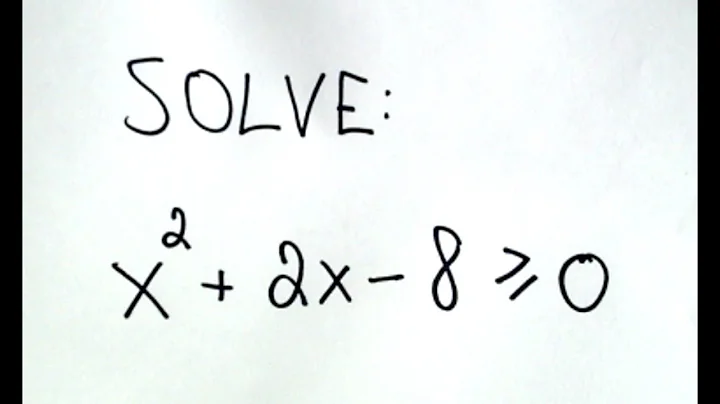 SOLVE:
x² + 2x - 8 ⩾ 0